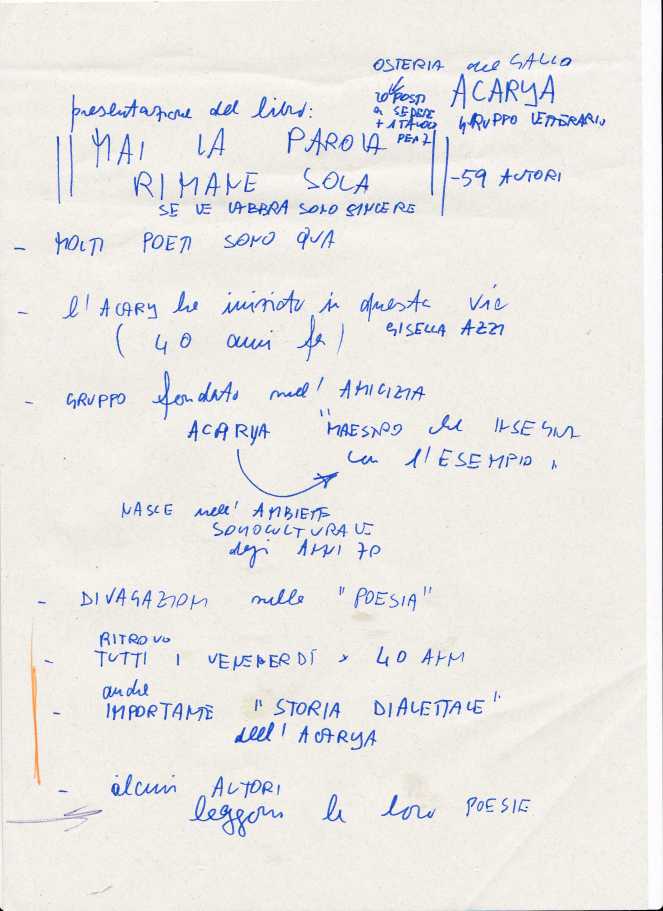 OSTERIA del GALLO
ACARYA
GRUPPO LETTERARIO
20 POSTI
a SEDERE
+ 1 TAVOLO
PER 7
presentazione del libro:
MAI LA PAROLA
RIMANE SOLA
SE LE LABBRA SONO SINCERE
-59 AUTORI
- MOLTI POETI SONO QUA
- l'ACARY ha iniziato in questa via
( 40 anni fa) GISELLA AZZI
- GRUPPO fondato nell'AMICIZIA
ACARYA "MAESTRO che INSEGNA
con l'ESEMPIO"
NASCE nell'AMBIENTE
degi ANNI 70
- DIVAGAZIONI sulla "POESIA"
RITROVO
- TUTTI I VENENERDÌ x 40 ANNI
anche
- IMPORTANTE "STORIA DIALETTALE"
dell'ACARYA
- alcuni AUTORI
leggono le loro POESIE